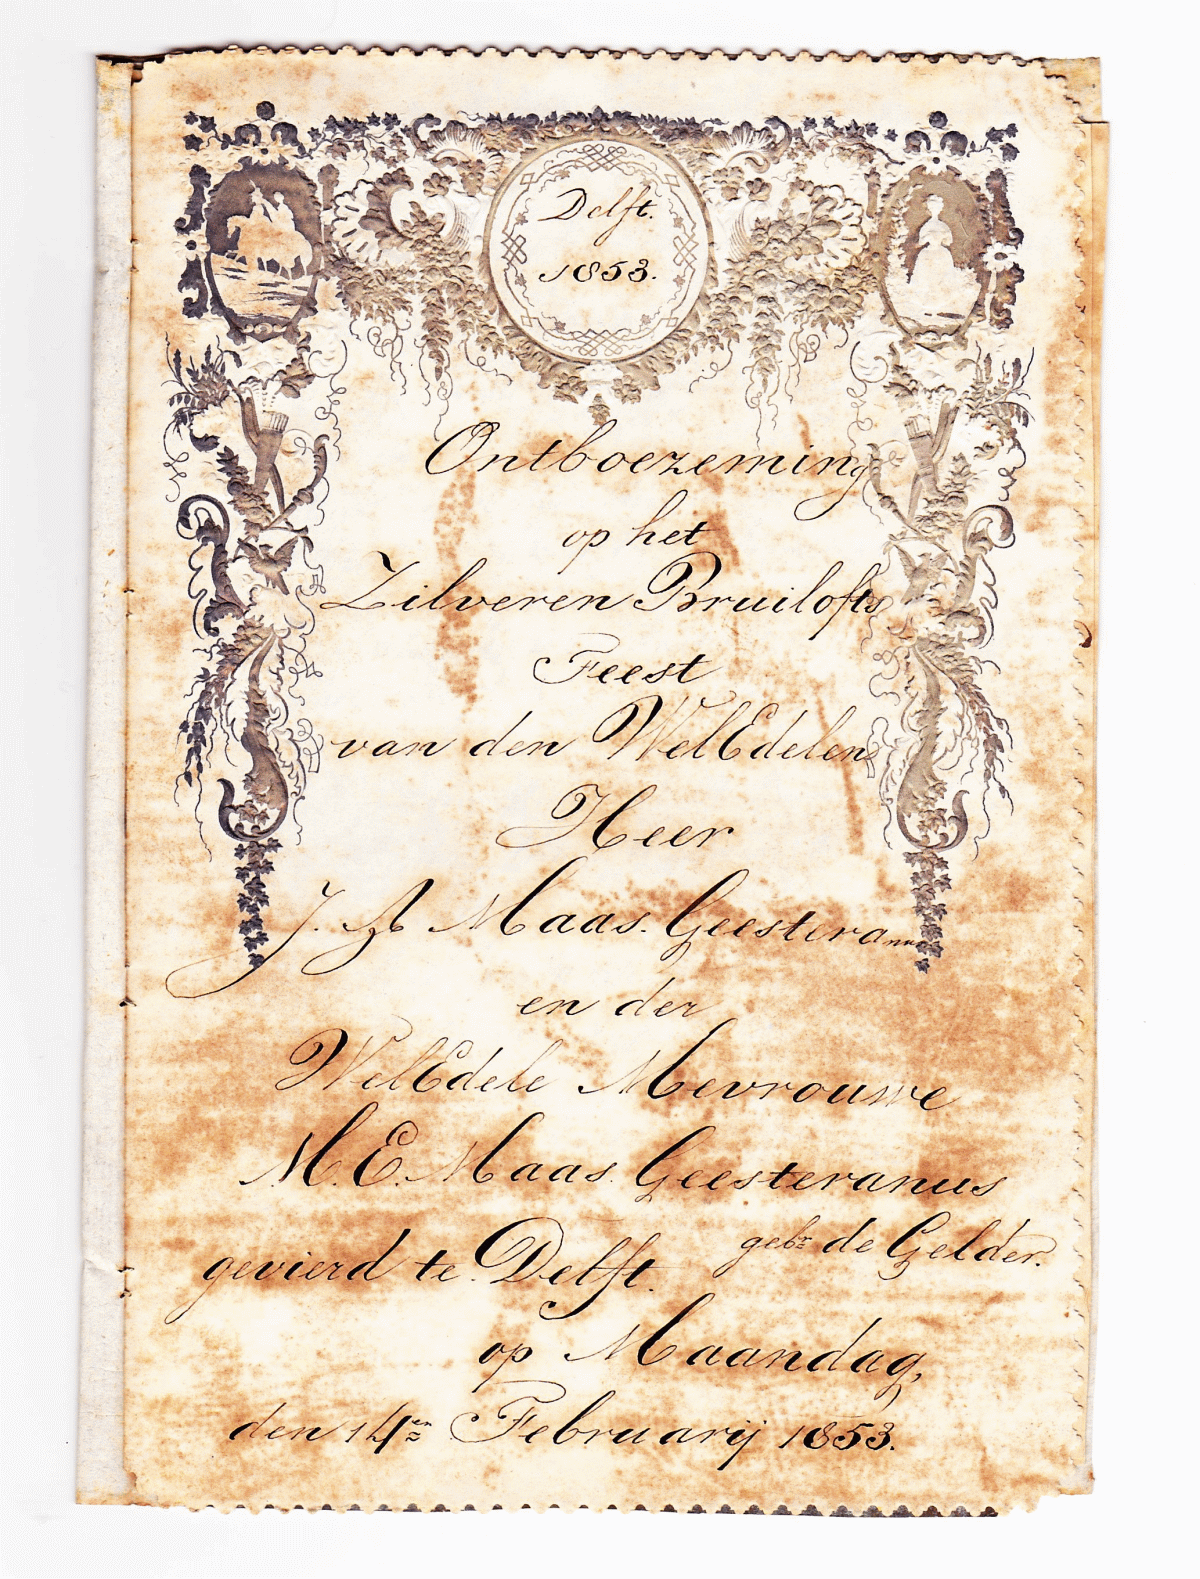 Delft.
1853.
Ontboezeming
op het
Zilveren Bruilofts
Feest
van den WelEdelen
Heer
J. A. Maas. Geesteranus
en der
WelEdele Mevrouwe
M. E. Maas. Geesteranus
gebr de Gelder.
gevierd te Delft.
op Maandag,
den 14en Februarij 1853.